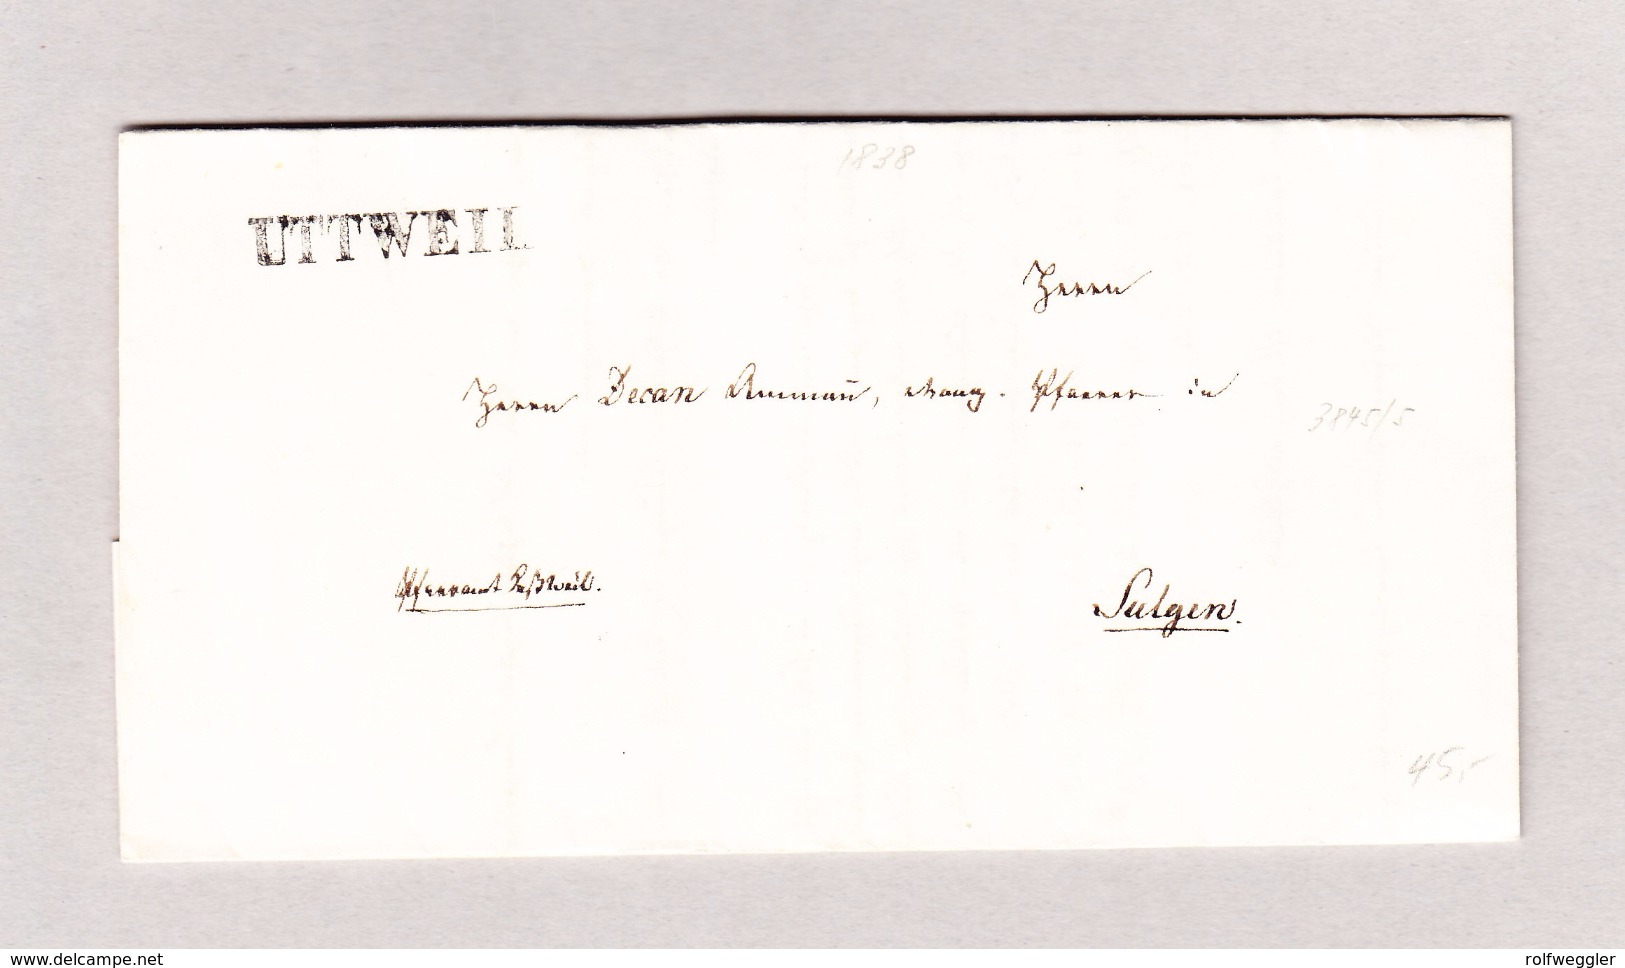 1838
UTTWEIL
Herrn
Herrn Decan Ammañ, evang. Pfarrer in
3845/5
Pfarramt Keßweil.
Sulgen.
45,-
www.delcampe.net
rolfweggler